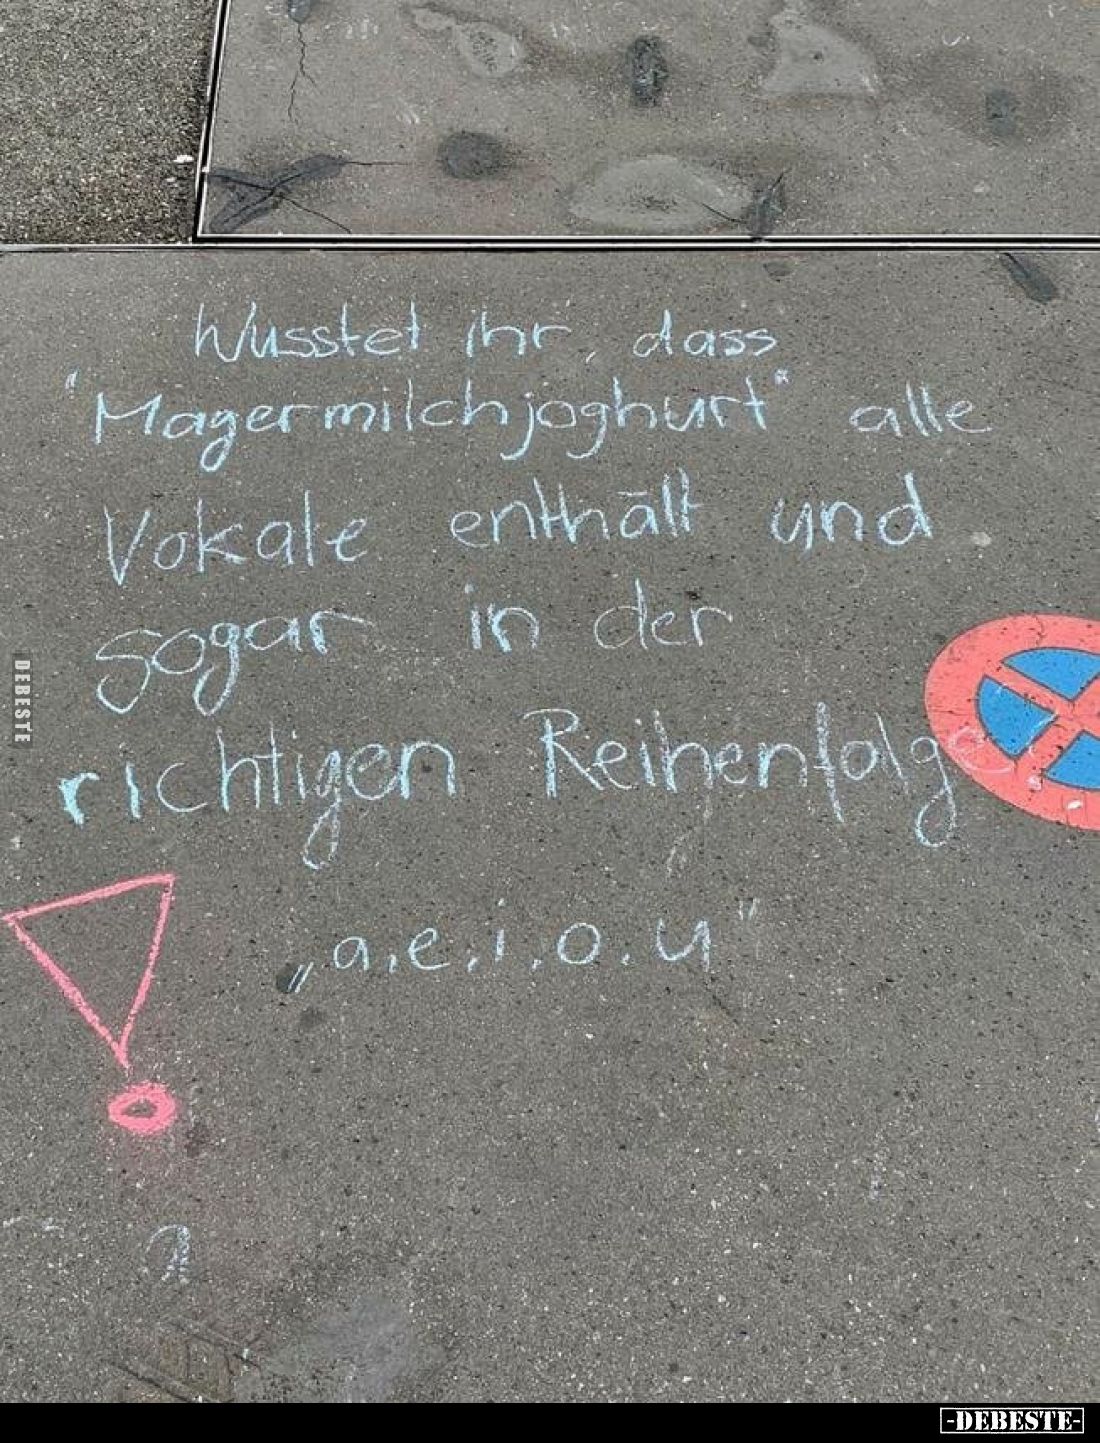 Wusstet ihr, dass
"Magermilchjoghurt" alle
Vokale enthält und
sogar in der
richtigen Reihenfolge?
„a.e.i.o.u"
DEBESTE
-DEBESTE-